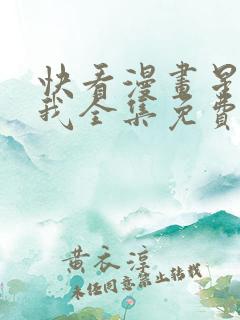 快看漫畫星
我全集免費
黄衣淳
未任同意禁止转载